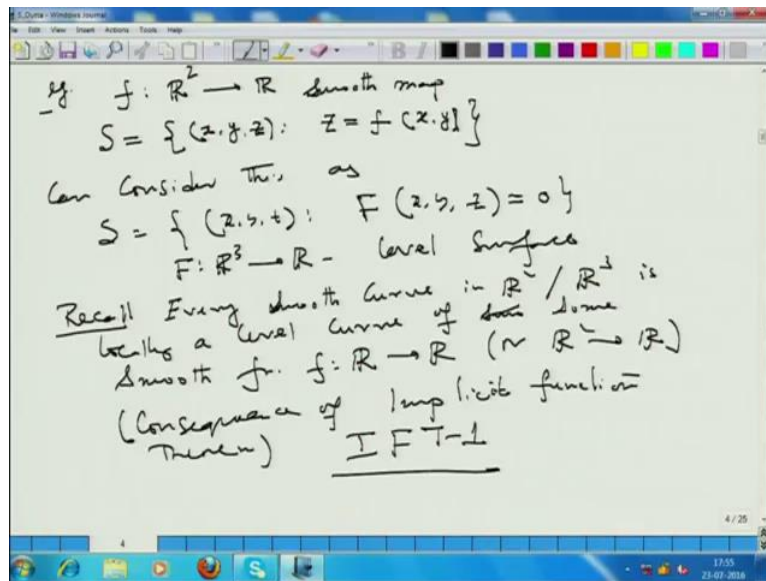 S_Dutta - Windows Journal
File Edit View Insert Actions Tools Help
Eg. f: ℝ² → ℝ smooth map
S = { (x, y, z): z = f (x, y) }
Can Consider this as
S = { (x, y, z): F (x, y, z) = 0 }
F: ℝ³ → ℝ - level surface
Recall Every smooth curve in ℝ² / ℝ³ is
locally a level curve of some
smooth fn. f: ℝ → ℝ (or ℝ² → ℝ)
(Consequence of Implicit function
Theorem) IFT-1
4 / 25
4
17:55
23-07-2016